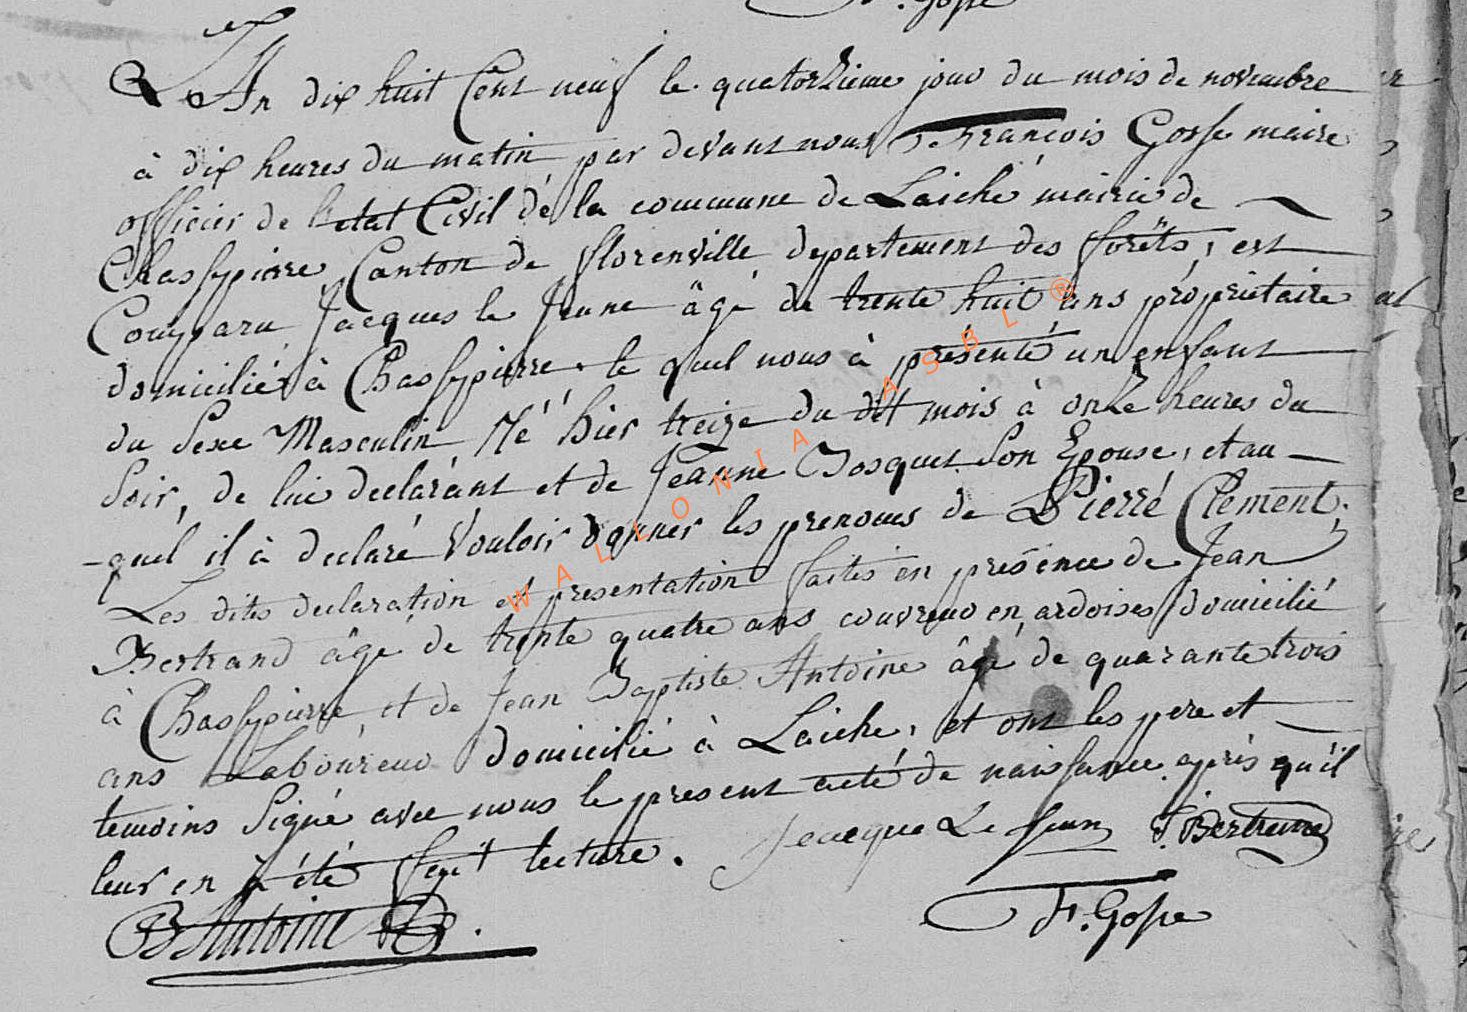 F. Gosse
L'An dix huit Cent neuf le quatorzieme jour du mois de novembre
à dix heures du matin par devant nous François Gosse maire
officier de l'etat Civil de la commune de Laiche mairie de
Chassepierre Canton de florenville departement des forêts, est
Comparu Jacques le Jeune âgé de trente huit ans propriétaire
domicilié à Chassepierre, le quel nous à présenté un enfant
du Sexe Masculin, Né hier treize du dit mois à onze heures du
Soir, de lui déclarant et de Jeanne Bosquet Son Epouse, et au
-quel il à declaré Vouloir donner les prenoms de Pierre Clement,
Les dites declaration et presentation faites en présence de Jean
Bertrand âgé de trente quatre ans couvreur en ardoises domicilié
à Chassepierre, et de Jean Baptiste Antoine âgé de quarante trois
ans Laboureur domicilié à Laiche, et ont les pere et
temoins Signé avec nous le present acte de naissance après qu'il
leur en à été fait lecture. Jacque Le Jeune J. Bertrand
B Antoine F. Gosse
WALLONIA ASBL ®